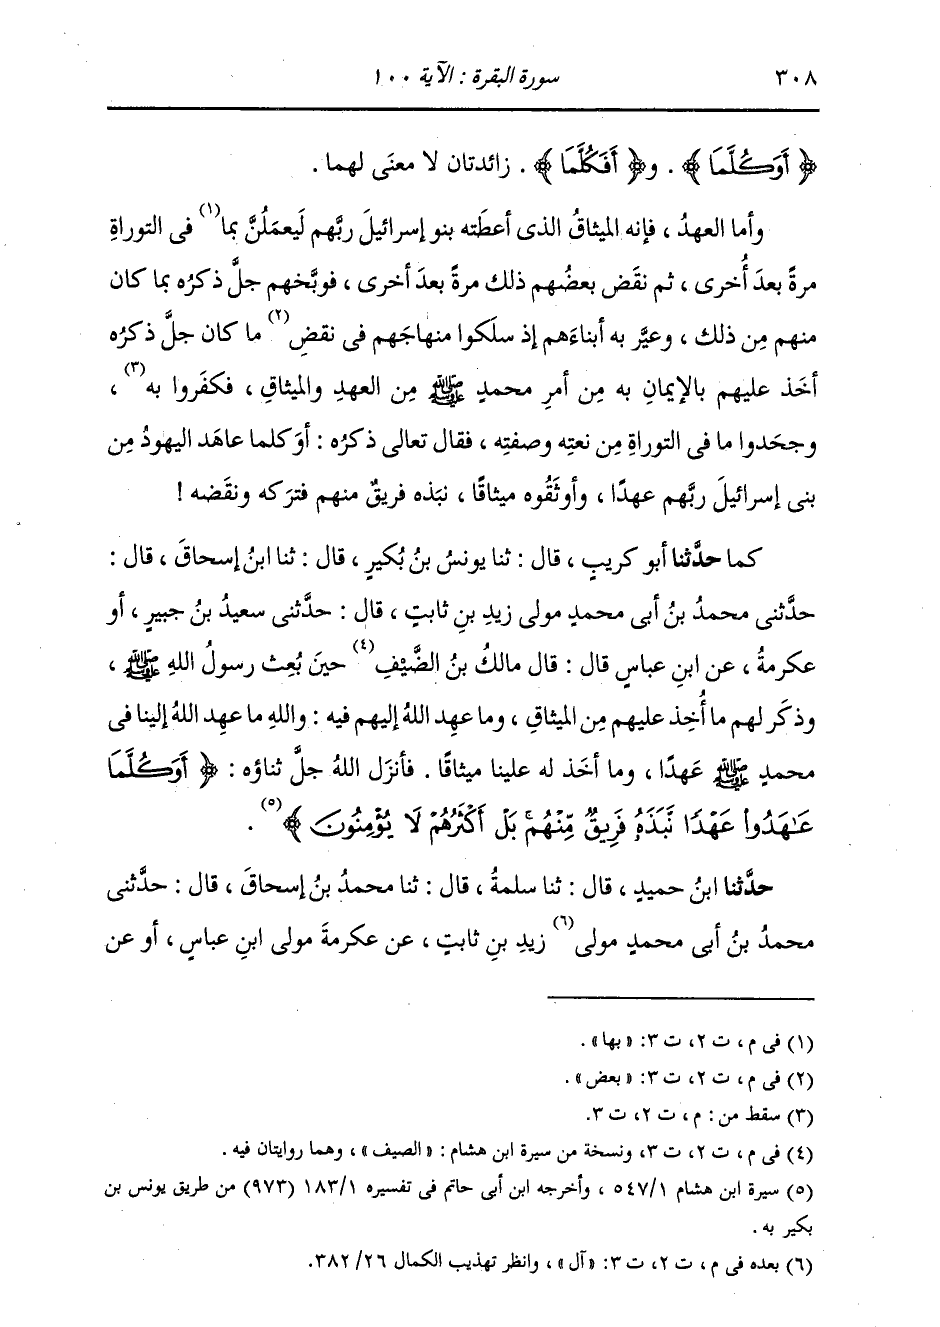 ٣٠٨ سورة البقرة : الآية ١٠٠
﴿ أَوَكُلَّمَا ﴾ . و﴿ أَفَكُلَّمَا ﴾ . زائدتان لا معنَى لهما .
وأما العهدُ ، فإنه الميثاقُ الذى أعطَته بنو إسرائيلَ ربَّهم لَيعمَلُنَّ بما(١) فى التوراةِ
مرةً بعدَ أُخرى ، ثم نقَض بعضُهم ذلك مرةً بعدَ أخرى ، فوبَّخهم جلَّ ذكرُه بما كان
منهم مِن ذلك ، وعيَّر به أبناءَهم إذ سلَكوا منهاجَهم فى نقضِ(٢) ما كان جلَّ ذكرُه
أخَذ عليهم بالإيمانِ به مِن أمرِ محمدٍ ﷺ مِن العهدِ والميثاقِ ، فكفَروا به(٣) ،
وجحَدوا ما فى التوراةِ مِن نعتِه وصفتِه ، فقال تعالى ذكرُه : أوَ كلما عاهَد اليهودُ مِن
بنى إسرائيلَ ربَّهم عهدًا ، وأوثَقُوه ميثاقًا ، نبَذه فريقٌ منهم فترَكه ونقَضه !
كما حدَّثنا أبو كريبٍ ، قال : ثنا يونسُ بنُ بُكيرٍ ، قال : ثنا ابنُ إسحاقَ ، قال :
حدَّثنى محمدُ بنُ أبى محمدٍ مولى زيدِ بنِ ثابتٍ ، قال : حدَّثنى سعيدُ بنُ جبيرٍ ، أو
عكرمةُ ، عن ابنِ عباسٍ قال : قال مالكُ بنُ الضَّيْفِ(٤) حينَ بُعِث رسولُ اللهِ ﷺ ،
وذكَر لهم ما أُخِذ عليهم مِن الميثاقِ ، وما عهِد اللهُ إليهم فيه : واللهِ ما عهِد اللهُ إلينا فى
محمدٍ ﷺ عَهدًا ، وما أخَذ له علينا ميثاقًا . فأنزَل اللهُ جلَّ ثناؤه : ﴿ أَوَكُلَّمَا
عَـٰهَدُواْ عَهْدًا نَّبَذَهُ فَرِيقٌ مِّنْهُمۚ بَلْ أَكْثَرُهُمْ لَا يُؤْمِنُونَ ﴾(٥) .
حدَّثنا ابنُ حميدٍ ، قال : ثنا سلمةُ ، قال : ثنا محمدُ بنُ إسحاقَ ، قال : حدَّثنى
محمدُ بنُ أبى محمدٍ مولى(٦) زيدِ بنِ ثابتٍ ، عن عكرمةَ مولى ابنِ عباسٍ ، أو عن
(١) فى م ، ت ٢، ت ٣: «بها» .
(٢) فى م ، ت ٢، ت ٣: «بعض» .
(٣) سقط من : م ، ت ٢، ت ٣.
(٤) فى م ، ت ٢، ت ٣، ونسخة من سيرة ابن هشام : «الصيف» ، وهما روايتان فيه .
(٥) سيرة ابن هشام ٥٤٧/١ ، وأخرجه ابن أبى حاتم فى تفسيره ١٨٣/١ (٩٧٣) من طريق يونس بن
بكير به .
(٦) بعده فى م ، ت ٢، ت ٣: «آل» ، وانظر تهذيب الكمال ٣٨٢/٢٦.